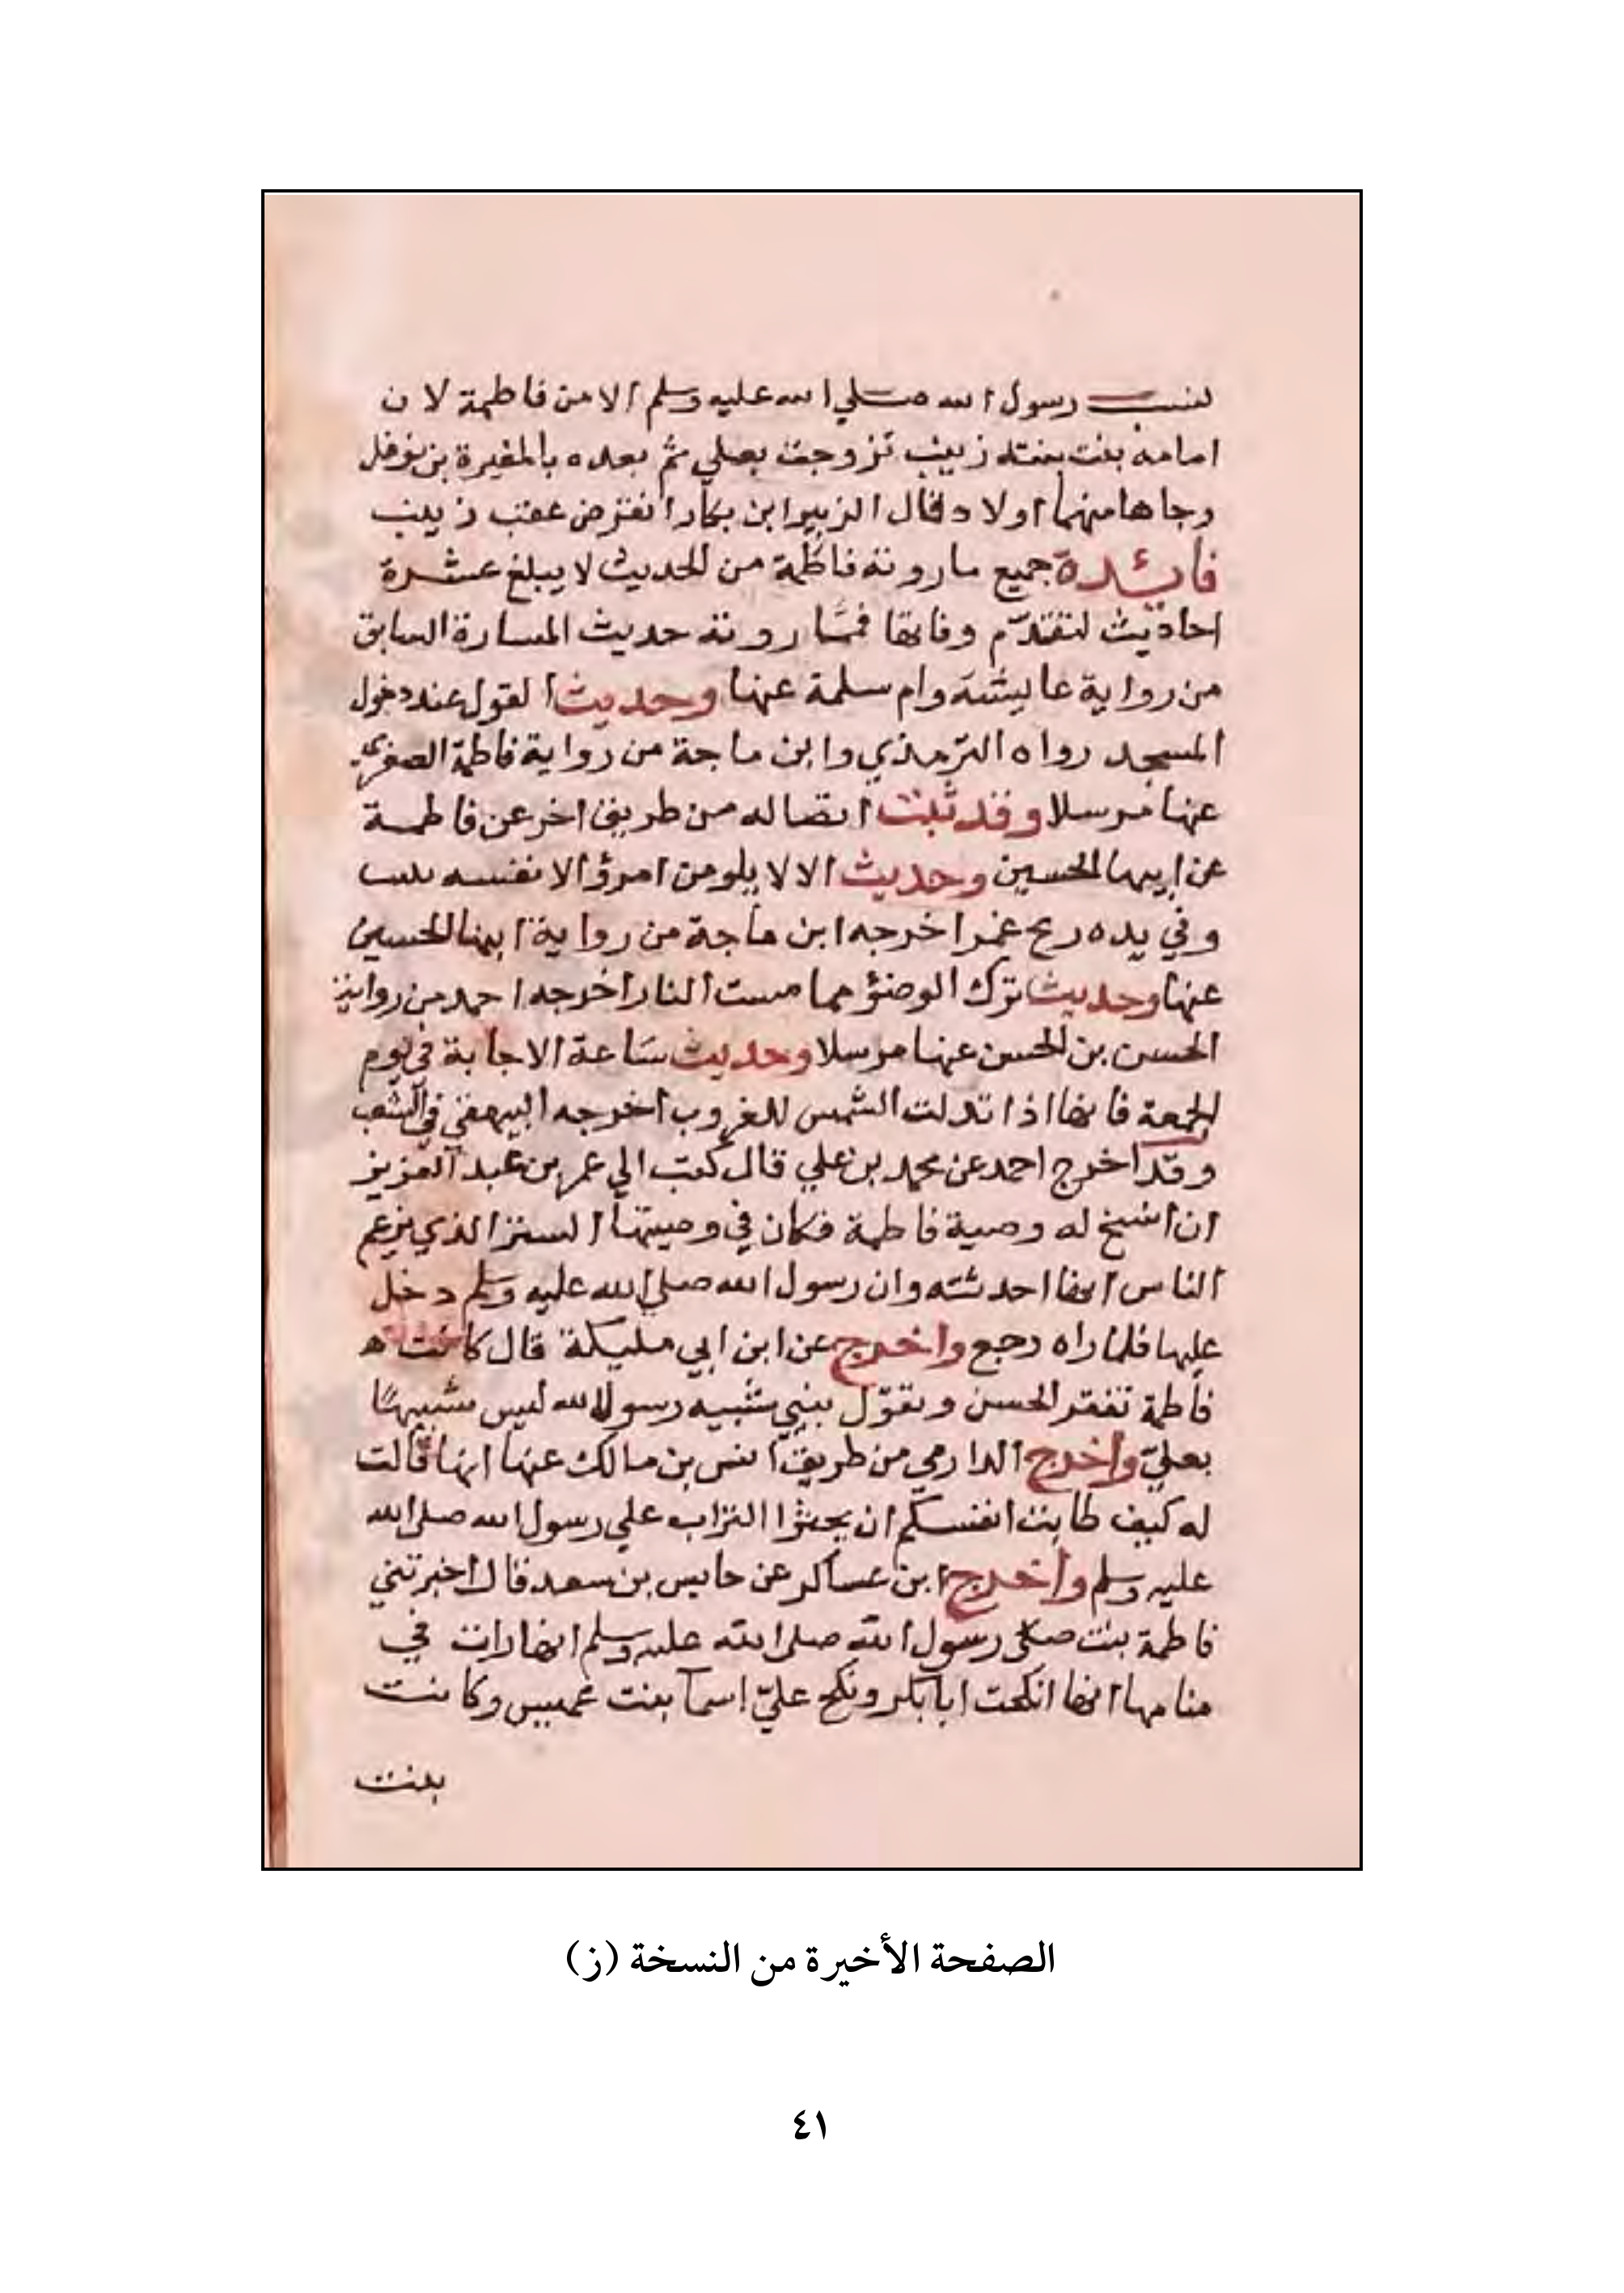 لنسب رسول الله صلي الله عليه وسلم الا من فاطمة لان
امامة بنت بنته زينب تزوجت بعلي ثم بعده بالمغيرة بن نوفل
وجاها منهما اولاد قال الزبير ابن بكار انقرض عقب زينب
فائدة جميع ما روته فاطمة من الحديث لا يبلغ عشرة
احاديث لتقدّم وفاتها فمّما روته حديث المسارة السابق
من رواية عايشة وام سلمة عنها وحديث القول عند دخول
المسجد رواه الترمذي وابن ماجة من رواية فاطمة الصغري
عنها مرسلا وقد ثبت اتصاله من طريق اخر عن فاطمة
عن ابيها الحسين وحديث الا لا يلومن امرؤ الا نفسه
وفي يده ريح غمر اخرجه ابن ماجة من رواية ابنها الحسين
عنها وحديث ترك الوضؤ مما مست النار اخرجه احمد من رواية
الحسن بن الحسن عنها مرسلا وحديث ساعة الاجابة في يوم
الجمعة فانها اذا تدلت الشمس للغروب اخرجه البيهقي في الشعب
وقد اخرج احمد عن محمد بن علي قال كتب الي عمر بن عبد العزيز
ان انسخ له وصية فاطمة فكان في وصيتها الستر الذي يزعم
الناس انها احدثته وان رسول الله صلي الله عليه وسلم دخل
عليها فلما راه رجع واخرج عن ابن ابي مليكة قال كانت
فاطمة تنقز الحسن وتقول بنيي شبيه رسول الله ليس شبيها
بعليّ واخرج الدارمي من طريق انس بن مالك عنها انها قالت
له كيف طابت انفسكم ان يحثوا التراب علي رسول الله صلى الله
عليه وسلم واخرج ابن عساكر عن حابس بن سعد قال اخبرتني
فاطمة بنت رسول الله صلى الله عليه وسلم انها رات في
منامها انها انكحت ابا بكر ونكح عليّ اسما بنت عميس وكانت
بنت
الصفحة الأخيرة من النسخة (ز)
٤١